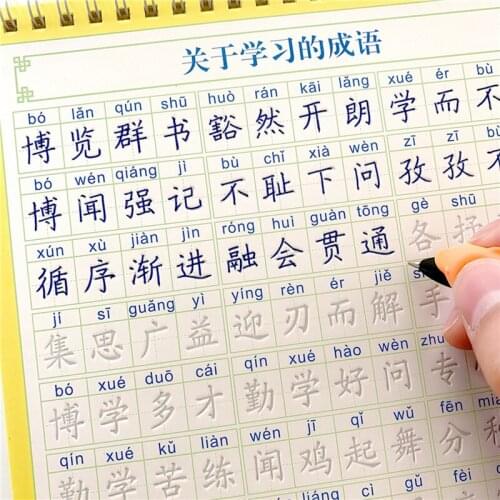 关于学习的成语
bó lǎn qún shū huò rán kāi lǎng xué ér bù
博览群书 豁然开朗 学而不
bó wén qiáng jì bù chǐ xià wèn zī zī bù
博闻强记 不耻下问 孜孜不
xún xù jiàn jìn róng huì guàn tōng gè shū
循序渐进 融会贯通 各抒
jí sī guǎng yì yíng rèn ér jiě
集思广益 迎刃而解 手
bó xué duō cái qín xué hào wèn zhu
博学多才 勤学好问 专
qín xué kǔ liàn wén jī qǐ wǔ fēn
勤学苦练 闻鸡起舞 分